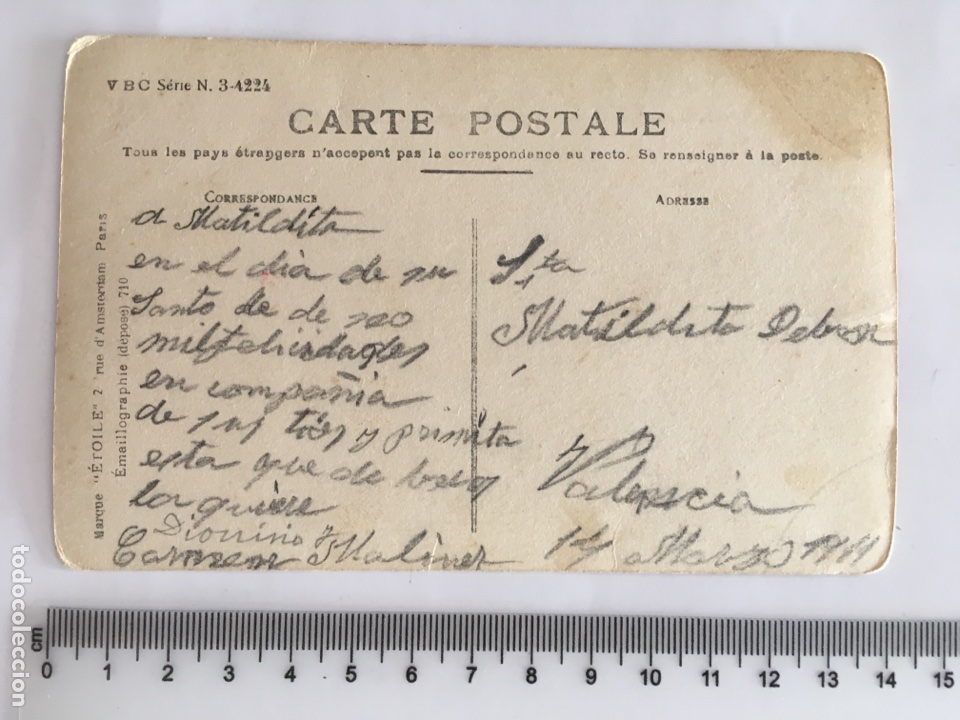 V B C Série N. 3-4224
CARTE POSTALE
Tous les pays étrangers n'accepent pas la correspondance au recto. Se renseigner à la poste.
CORRESPONDANCE
a Matildita
en el dia de su
Santo le de seo
mil felicidades
en compañia
de sus tios y primita
esta que de beras
la quiere
Dionisio y
Carmen Moliner
ADRESSE
Sta
Matildita
Valencia
14 Marzo
Marque "ÉTOILE" 2 rue d'Amsterdam Paris
Émaillographie (deposé) 710
todocoleccion
cm
0 1 2 3 4 5 6 7 8 9 10 11 12 13 14 15